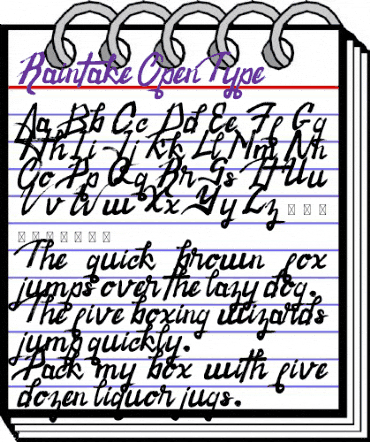 Raintake Open Type
Aa Bb Cc Dd Ee Ff Gg
Hh Ii Jj Kk Ll Mm Nn
Oo Pp Qq Rr Ss Tt Uu
Vv Ww Xx Yy Zz
The quick brown fox
jumps over the lazy dog.
The five boxing wizards
jump quickly.
Pack my box with five
dozen liquor jugs.